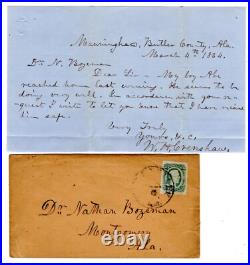 Manningham, Butler County, Ala.
March 4th 1864.
Dr. N. Bozeman
Dear Sir - My boy Abe
reached home last evening. He seems to be
doing very well. In accordance with your re-
quest I write to let you know that I have recd
him safe.
Very Truly
Yours, &c.
W. H. Crenshaw
Dr. Nathan Bozeman
Montgomery
Ala.